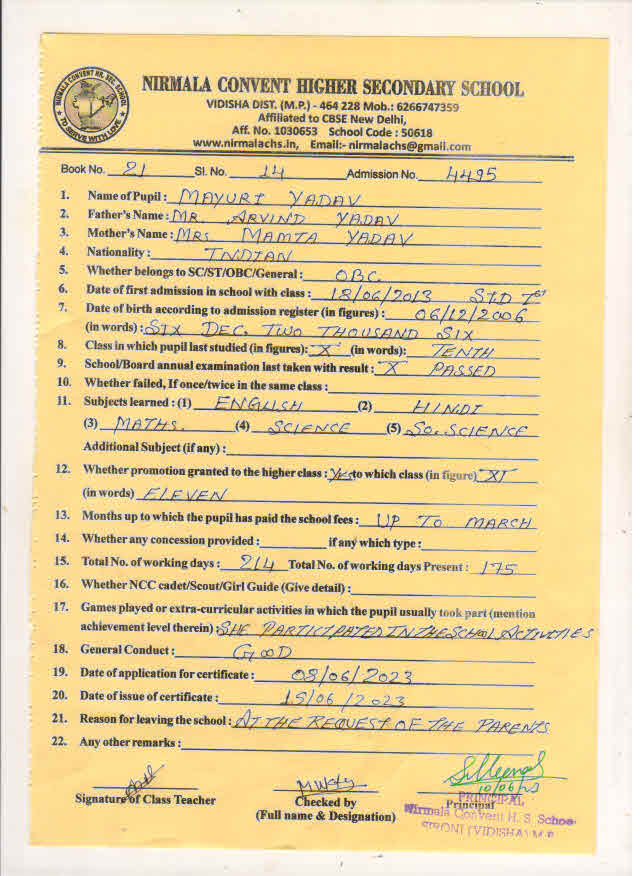 NIRMALA CONVENT HR. SEC. SCHOOL
TO SERVE WITH LOVE
NIRMALA CONVENT HIGHER SECONDARY SCHOOL
VIDISHA DIST. (M.P.) - 464 228 Mob.: 6266747359
Affiliated to CBSE New Delhi,
Aff. No. 1030653 School Code : 50618
www.nirmalachs.in, Email:- nirmalachs@gmail.com
Book No. 21 Sl. No. 14 Admission No. 4495
1. Name of Pupil : MAYURI YADAV
2. Father's Name : MR. ARVIND YADAV
3. Mother's Name : MRS MAMTA YADAV
4. Nationality : INDIAN
5. Whether belongs to SC/ST/OBC/General : OBC
6. Date of first admission in school with class : 18/06/2013 STD Ist
7. Date of birth according to admission register (in figures) : 06/12/2006
(in words) : SIX DEC. TWO THOUSAND SIX
8. Class in which pupil last studied (in figures): "X" (in words): TENTH
9. School/Board annual examination last taken with result : "X" PASSED
10. Whether failed, If once/twice in the same class :
11. Subjects learned : (1) ENGLISH (2) HINDI
(3) MATHS. (4) SCIENCE (5) SO. SCIENCE
Additional Subject (if any) :
12. Whether promotion granted to the higher class : Yes to which class (in figure) "XI"
(in words) ELEVEN
13. Months up to which the pupil has paid the school fees : UP TO MARCH
14. Whether any concession provided : if any which type :
15. Total No. of working days : 214 Total No. of working days Present : 175
16. Whether NCC cadet/Scout/Girl Guide (Give detail) :
17. Games played or extra-curricular activities in which the pupil usually took part (mention
achievement level therein) : SHE PARTICIPATED IN THE SCHOOL ACTIVITIES
18. General Conduct : GOOD
19. Date of application for certificate : 08/06/2023
20. Date of issue of certificate : 15/06/2023
21. Reason for leaving the school : AT THE REQUEST OF THE PARENTS
22. Any other remarks :
10/06/23
Signature of Class Teacher Checked by Principal
(Full name & Designation)
PRINCIPAL
Nirmala Convent H. S. Schoo
SIRONJ (VIDISHA) M.P.